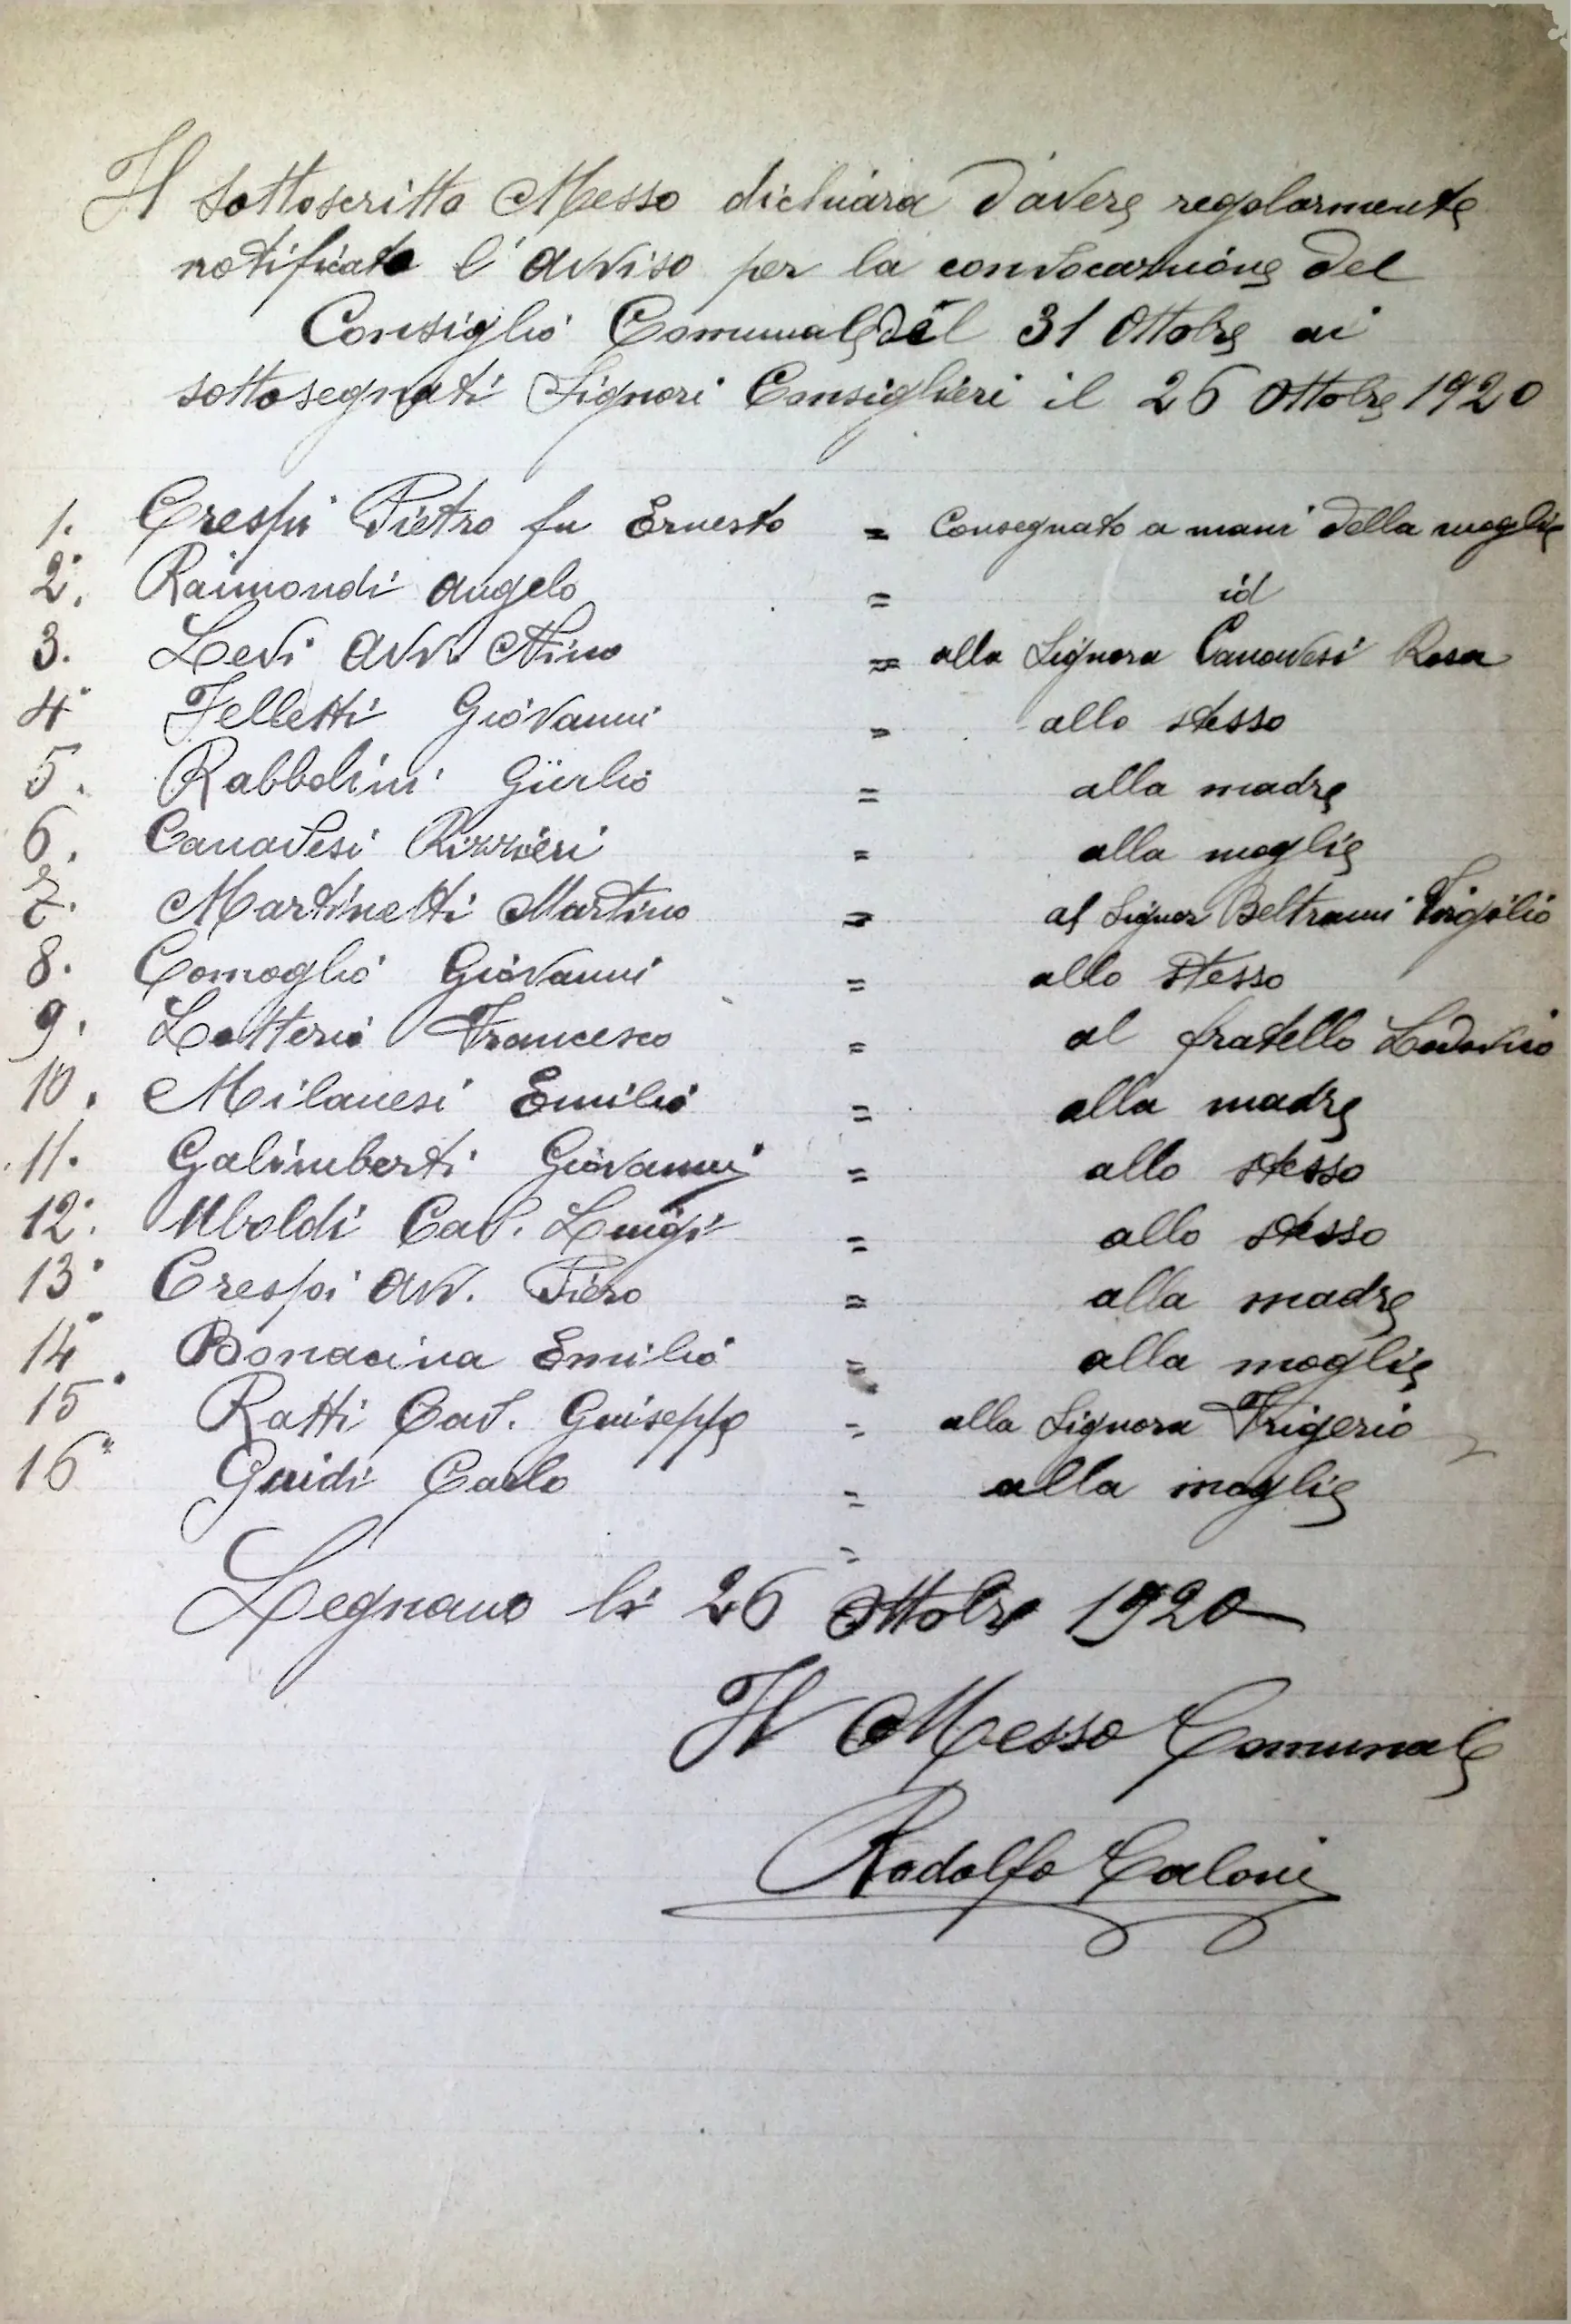 Il sottoscritto Messo dichiara d'avere regolarmente
notificato l'avviso per la convocazione del
Consiglio Comunale del 31 Ottobre ai
sottosegnati Signori Consiglieri il 26 Ottobre 1920
1. Crespi Pietro fu Ernesto = Consegnato a mani della moglie
2. Raimondi Angelo = id
3. Levi Avv. Nino = alla Signora Canavesi Rosa
4 Felletti Giovanni = allo stesso
5. Rabbolini Giulio = alla madre
6. Canavesi Rizzieri = alla moglie
7. Martinetti Martino = al Signor Beltrami Virgilio
8. Comoglio Giovanni = allo stesso
9. Lotterio Francesco = al fratello Lodovico
10. Milanesi Emilio = alla madre
11. Galimberti Giovanni = allo stesso
12. Uboldi Cav. Luigi = allo stesso
13 Crespi Avv. Piero = alla madre
14 Bonacina Emilio = alla moglie
15 Ratti Cav. Guiseppe = alla Signora Frigerio
16 Guidi Carlo = alla moglie
=
Legnano li 26 Ottobre 1920
Il Messo Comunale
Rodolfo Caloni